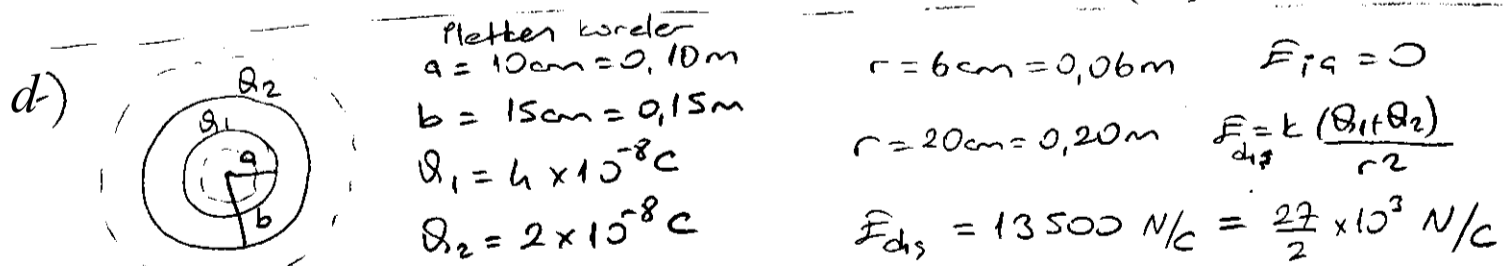 d-)
Q₂
Q₁
a
b
İletken küreler
a = 10cm = 0,10m
b = 15cm = 0,15m
Q₁ = 4 x 10⁻⁸ C
Q₂ = 2 x 10⁻⁸ C
r = 6cm = 0,06m E_iç = 0
r = 20cm = 0,20m E_dış = k (Q₁+Q₂) / r2
E_dış = 13500 N/C = 27/2 x 10³ N/C